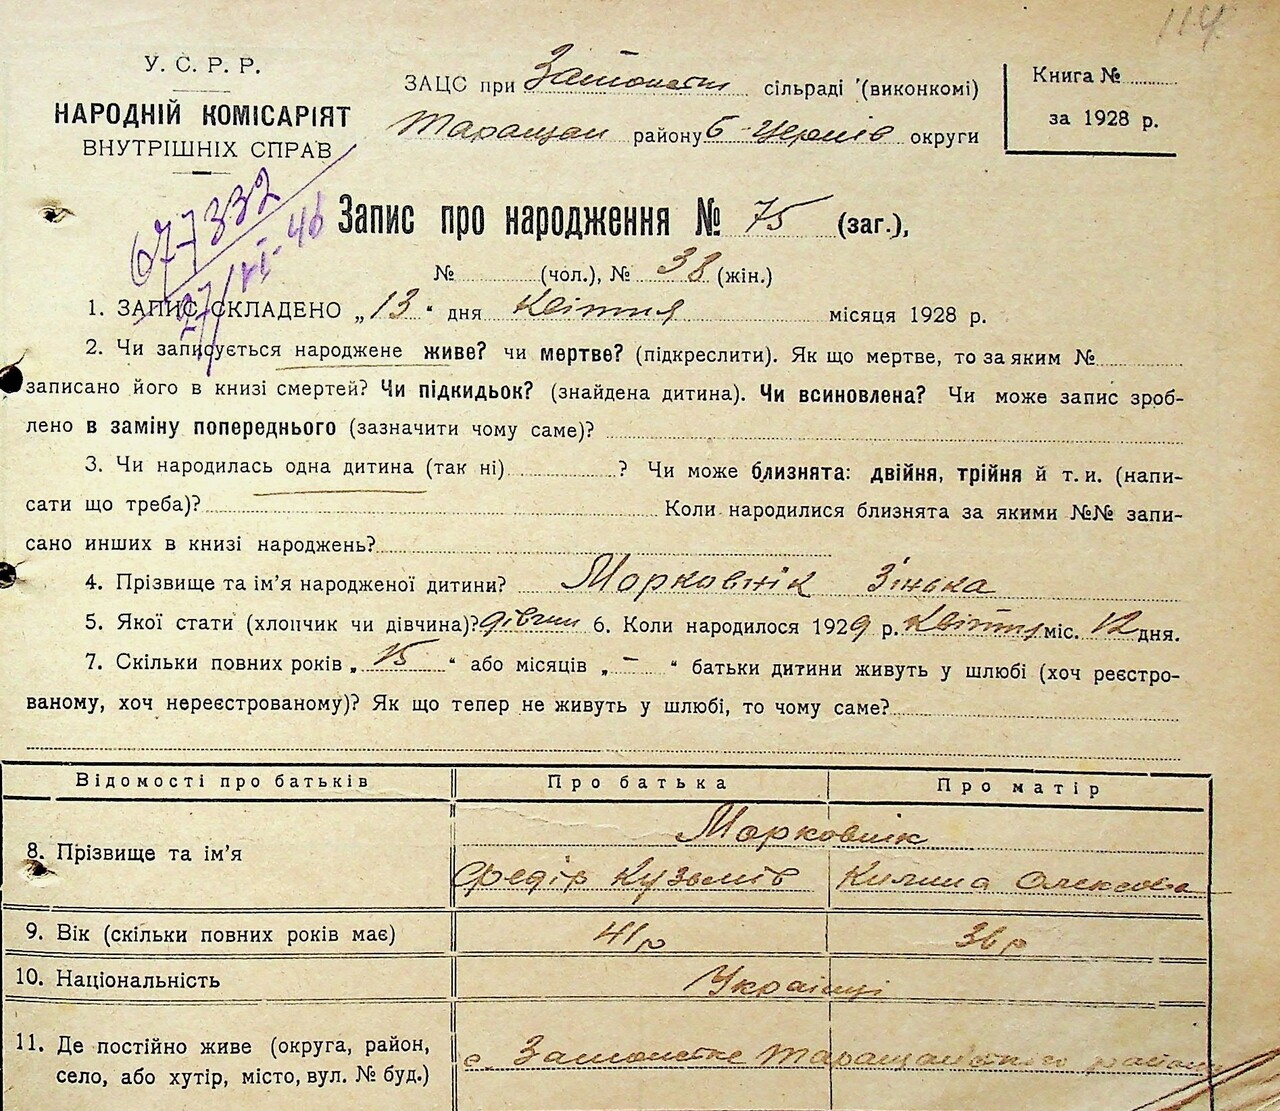 114
У. С. Р. Р.
НАРОДНІЙ КОМІСАРІЯТ
ВНУТРІШНІХ СПРАВ
ЗАЦС при сільраді (виконкомі)
Таращан району Б-Церків округи
Книга №
за 1928 р.
677332
27/VI-46
Запис про народження № 75 (заг.),
№ (чол.), № 38 (жін.)
1. ЗАПИС СКЛАДЕНО „13“ дня Квітня місяця 1928 р.
2. Чи записується народжене живе? чи мертве? (підкреслити). Як що мертве, то за яким №
записано його в книзі смертей? Чи підкидьок? (знайдена дитина). Чи всиновлена? Чи може запис зроб-
лено в заміну попереднього (зазначити чому саме)?
3. Чи народилась одна дитина (так ні) ? Чи може близнята: двійня, трійня й т. и. (напи-
сати що треба)? Коли народилися близнята за якими №№ запи-
сано инших в книзі народжень?
4. Прізвище та ім’я народженої дитини? Марковнік Зінька
5. Якої статі (хлопчик чи дівчина)? дівчин 6. Коли народилося 1929 р. Квітня міс. 12 дня.
7. Скільки повних років „15“ або місяців „-“ батьки дитини живуть у шлюбі (хоч реєстро-
ваному, хоч нереєстрованому)? Як що тепер не живуть у шлюбі, то чому саме?
Відомості про батьків Про батька Про матір
8. Прізвище та ім’я Марковнік
Федір Кузьмів Килина Олексова
9. Вік (скільки повних років має) 41 р 36 р
10. Національність Українці
11. Де постійно живе (округа, район,
село, або хутір, місто, вул. № буд.) с. Таращанського району